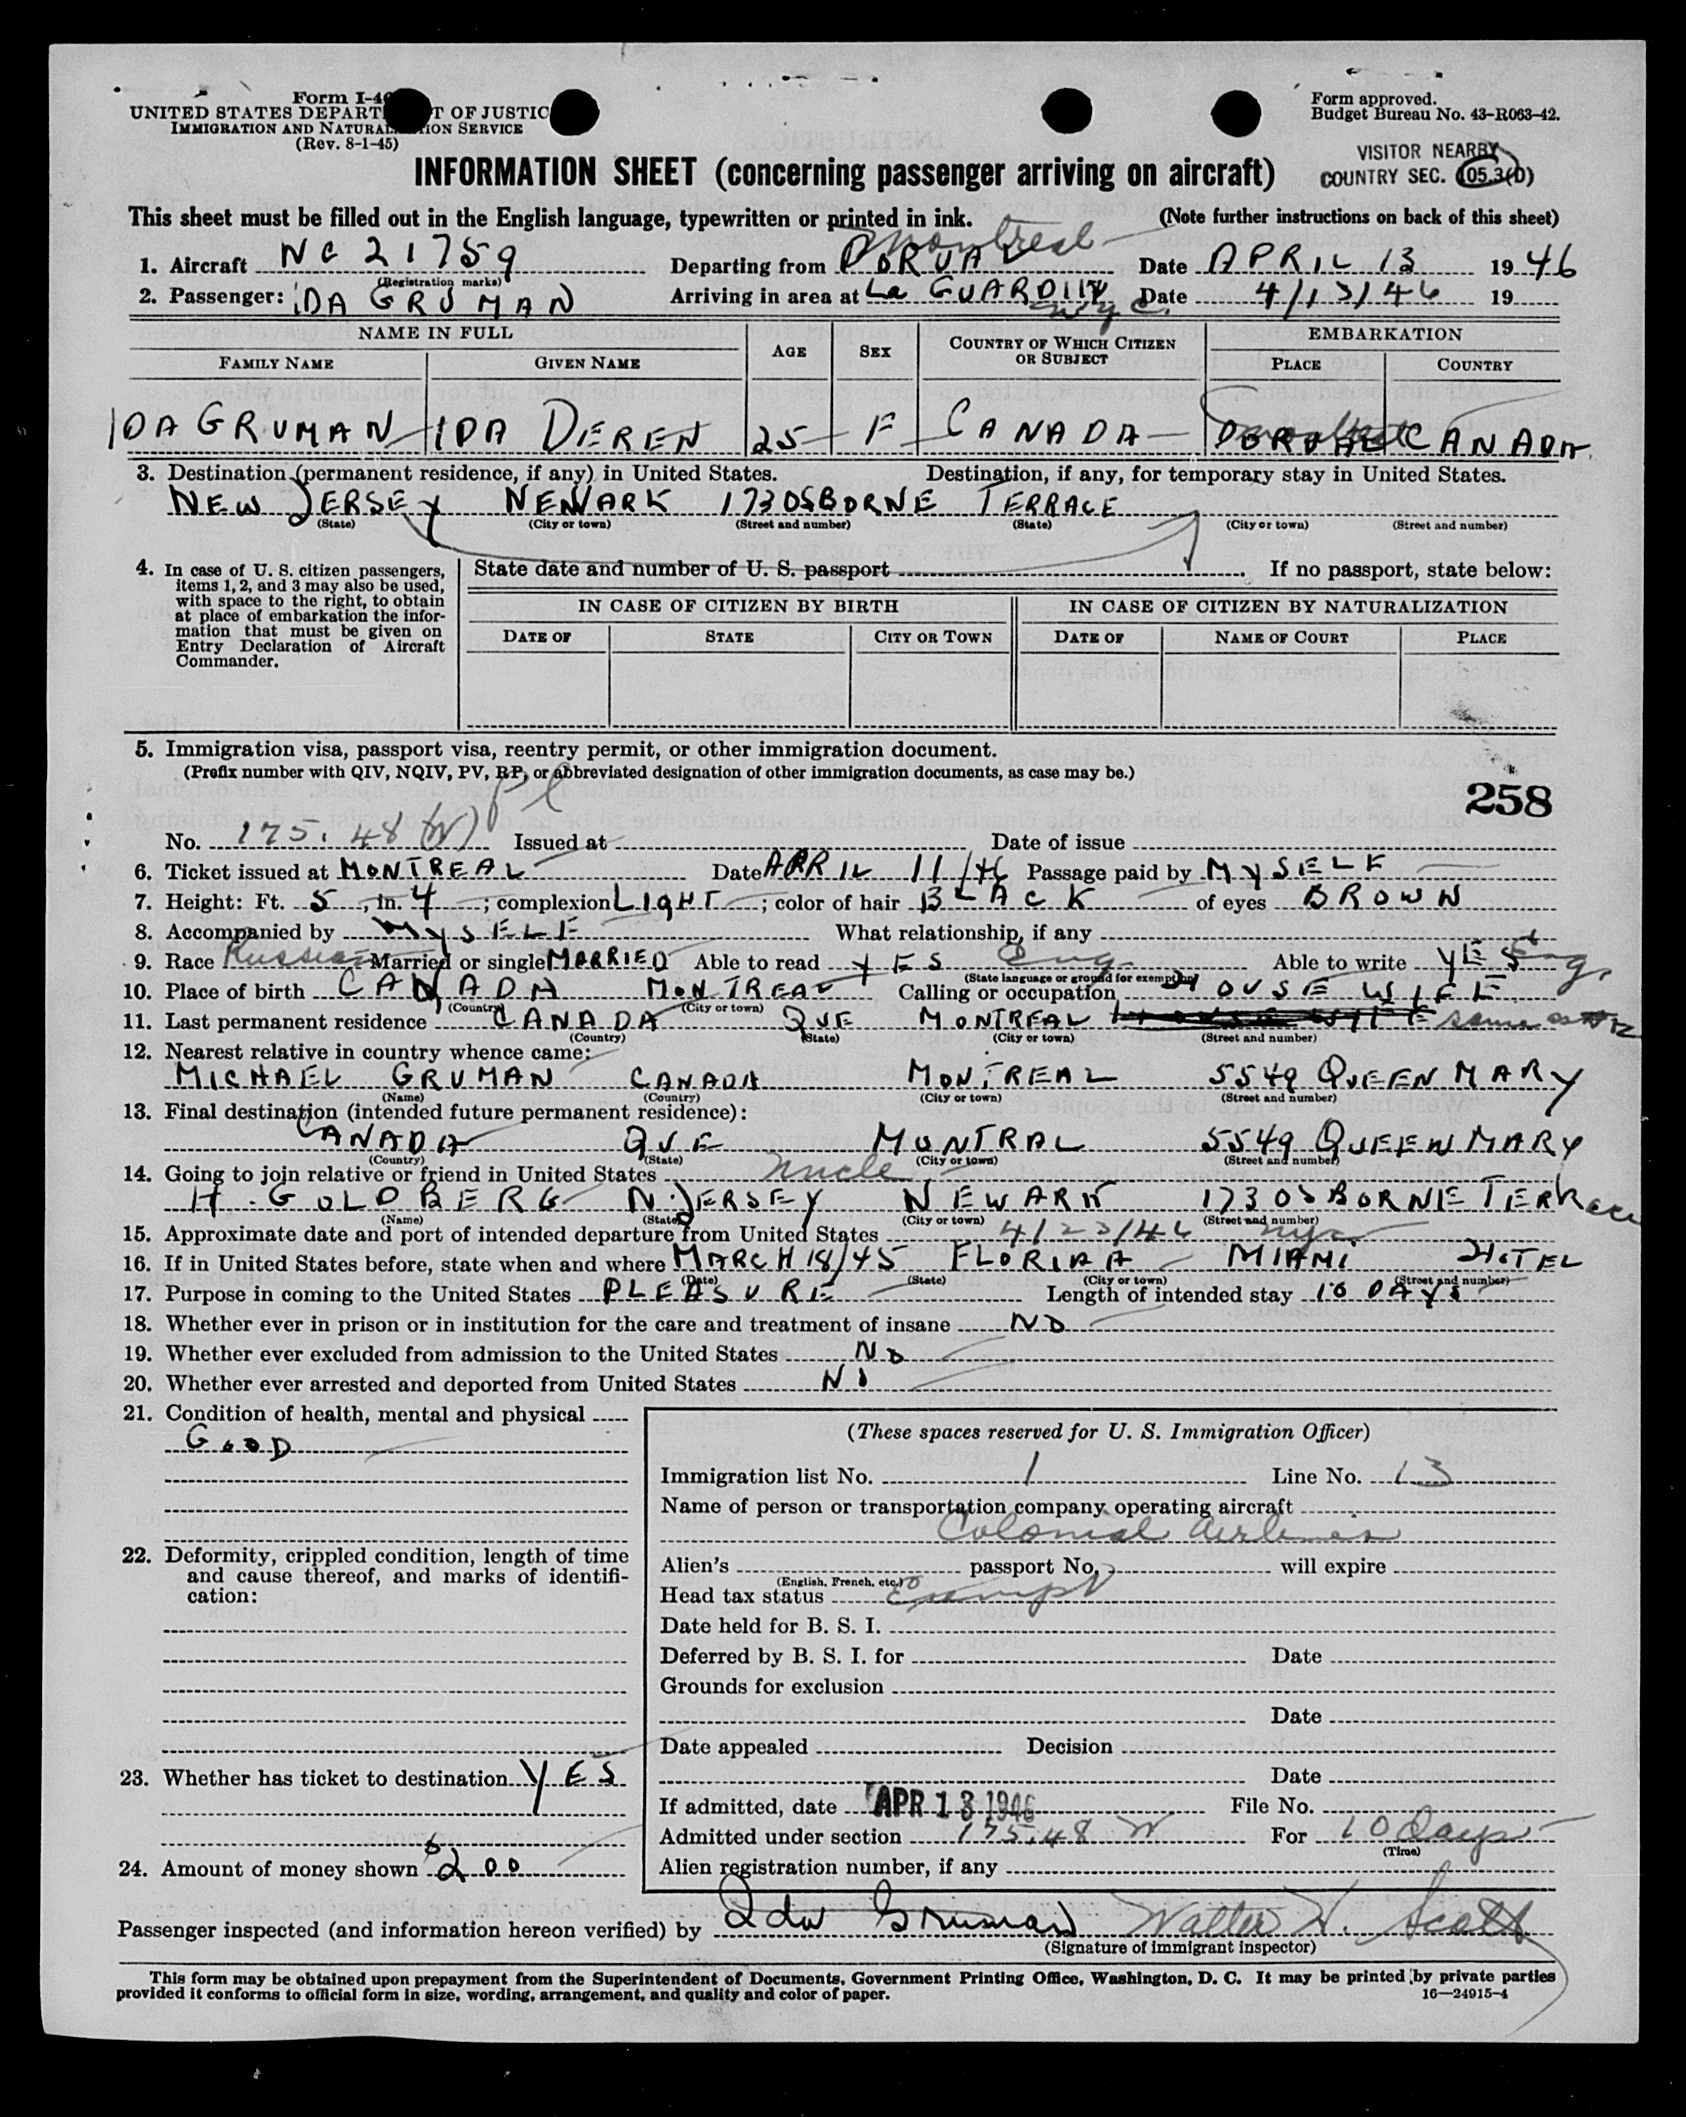 Form I-4
UNITED STATES DEPART T OF JUSTIC
IMMIGRATION AND NATURAL TION SERVICE
(Rev. 8-1-45)
Form approved.
Budget Bureau No. 43-R063-42.
INFORMATION SHEET (concerning passenger arriving on aircraft)
VISITOR NEARBY
COUNTRY SEC. 105.3(b)
This sheet must be filled out in the English language, typewritten or printed in ink. (Note further instructions on back of this sheet)
Montreal
1. Aircraft NC 21759 Departing from DORVAL Date APRIL 13 1946
(Registration marks)
2. Passenger: IDA GRUMAN Arriving in area at La GUARDIA Date 4/13/46 19
N.Y.C.
NAME IN FULL AGE SEX COUNTRY OF WHICH CITIZEN OR SUBJECT EMBARKATION
FAMILY NAME GIVEN NAME PLACE COUNTRY
IDA GRUMAN IDA DEREN 25 F CANADA DORVAL CANADA
3. Destination (permanent residence, if any) in United States. Destination, if any, for temporary stay in United States.
NEW JERSEY NEWARK 173 OSBORNE TERRACE
(State) (City or town) (Street and number) (State) (City or town) (Street and number)
4. In case of U. S. citizen passengers, items 1, 2, and 3 may also be used, with space to the right, to obtain at place of embarkation the information that must be given on Entry Declaration of Aircraft Commander.
State date and number of U. S. passport . If no passport, state below:
IN CASE OF CITIZEN BY BIRTH IN CASE OF CITIZEN BY NATURALIZATION
DATE OF STATE CITY OR TOWN DATE OF NAME OF COURT PLACE
5. Immigration visa, passport visa, reentry permit, or other immigration document.
(Prefix number with QIV, NQIV, PV, RP, or abbreviated designation of other immigration documents, as case may be.)
258
No. 175.48 (W) Issued at Date of issue
6. Ticket issued at MONTREAL Date APRIL 11/46 Passage paid by MYSELF
7. Height: Ft. 5, in. 4; complexion LIGHT; color of hair BLACK of eyes BROWN
8. Accompanied by MYSELF What relationship, if any
9. Race Russian Married or single MARRIED Able to read YES Eng. Able to write YES Eng.
(State language or ground for exemption)
10. Place of birth CANADA MONTREAL Calling or occupation HOUSE WIFE
(Country) (City or town)
11. Last permanent residence CANADA QUE MONTREAL HOUSE WIFE same as #12
(Country) (State) (City or town) (Street and number)
12. Nearest relative in country whence came:
MICHAEL GRUMAN CANADA MONTREAL 5549 QUEEN MARY
(Name) (Country) (City or town) (Street and number)
13. Final destination (intended future permanent residence):
CANADA QUE MONTRAL 5549 QUEEN MARY
(Country) (State) (City or town) (Street and number)
14. Going to join relative or friend in United States Uncle
H. GOLDBERG N. JERSEY NEWARK 173 OSBORNE TERRace
(Name) (State) (City or town) (Street and number)
15. Approximate date and port of intended departure from United States 4/23/46 nyc
16. If in United States before, state when and where MARCH 18/45 FLORIDA MIAMI HOTEL
(Date) (State) (City or town) (Street and number)
17. Purpose in coming to the United States PLEASURE Length of intended stay 10 DAYS
18. Whether ever in prison or in institution for the care and treatment of insane NO
19. Whether ever excluded from admission to the United States NO
20. Whether ever arrested and deported from United States NO
21. Condition of health, mental and physical
GOOD
(These spaces reserved for U. S. Immigration Officer)
Immigration list No. 1 Line No. 13
Name of person or transportation company operating aircraft
Colonial Airlines
22. Deformity, crippled condition, length of time and cause thereof, and marks of identification:
Alien's passport No. will expire
(English, French, etc.)
Head tax status Exempt
Date held for B. S. I.
Deferred by B. S. I. for Date
Grounds for exclusion
Date
Date appealed Decision
23. Whether has ticket to destination YES
Date
If admitted, date APR 13 1946 File No.
Admitted under section 175.48 W For 10 Days
(Time)
24. Amount of money shown $200
Alien registration number, if any
Passenger inspected (and information hereon verified) by Ida Gruman Walter H. Scott
(Signature of immigrant inspector)
This form may be obtained upon prepayment from the Superintendent of Documents, Government Printing Office, Washington, D. C. It may be printed by private parties
provided it conforms to official form in size, wording, arrangement, and quality and color of paper. 16—24915-4